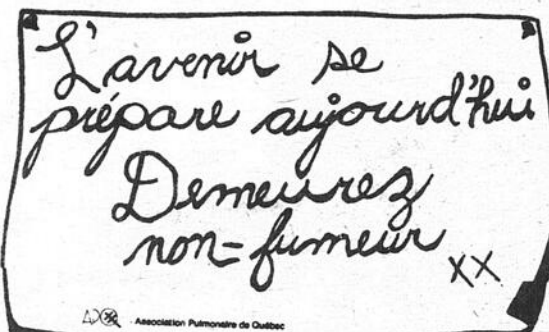 L'avenir se
prépare aujourd'hui
Demeurez
non-fumeur
XX
Association Pulmonaire du Québec